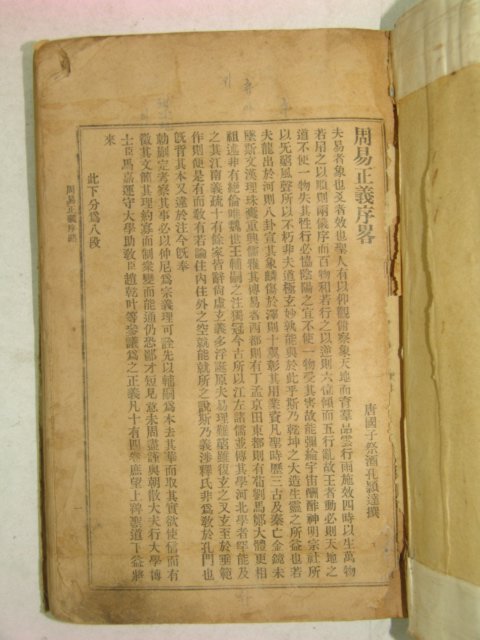 周易正義序畧
唐國子祭酒孔穎達撰
夫易者象也爻者效也聖人有以仰觀俯察象天地而育羣品雲行雨施效四時以生萬物
若用之以順則兩儀序而百物和若行之以逆則六位傾而五行亂故王者動必則天地之
道不使一物失其性行必協陰陽之宜不使一物受其害故能彌綸宇宙酬酢神明宗社所
以无窮風聲所以不朽非夫道極玄妙孰能與於此乎斯乃乾坤之大造生靈之所益也若
夫龍出於河則八卦宣其象麟傷於澤則十翼彰其用業資凡聖時歷三古及秦亡金鏡未
墜斯文漢理珠囊重興儒雅其傳易者西都則有丁孟京田東都則有荀劉馬鄭大體更相
祖述非有絕倫唯魏世王輔嗣之注獨冠今古所以江左諸儒並傳其學河北學者罕能及
之其江南義疏十有餘家皆辭尚虛玄義多浮誕原夫易理難窮雖復玄之又玄至於垂範
作則便是有而敎有若論住內住外之空就能就所之說斯乃義涉釋氏非爲敎於孔門也
旣背其本又違於注今旣奉
勅刪定考察其事必以仲尼爲宗義理可詮先以輔嗣爲本去其華而取其實欲使信而有
徵其文簡其理約寡而制衆變而能通仍恐鄙才短見意未周盡謹與朝散大夫行大學博
士臣馬嘉運守大學助敎臣趙乾叶等參議爲之正義凡十有四卷庶望上裨聖道下益將
來
此下分爲八段
周易正義序畧